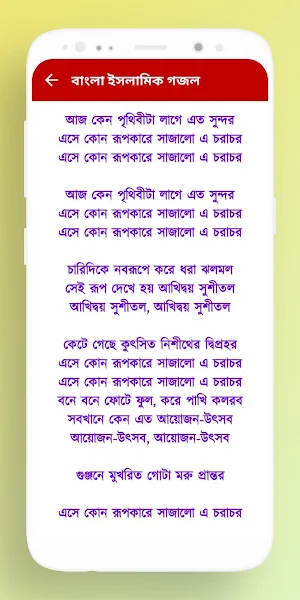 বাংলা ইসলামিক গজল
আজ কেন পৃথিবীটা লাগে এত সুন্দর
এসে কোন রূপকারে সাজালো এ চরাচর
এসে কোন রূপকারে সাজালো এ চরাচর
আজ কেন পৃথিবীটা লাগে এত সুন্দর
এসে কোন রূপকারে সাজালো এ চরাচর
এসে কোন রূপকারে সাজালো এ চরাচর
চারিদিকে নবরূপে করে ধরা ঝলমল
সেই রূপ দেখে হয় আখিদ্বয় সুশীতল
আখিদ্বয় সুশীতল, আখিদ্বয় সুশীতল
কেটে গেছে কুৎসিত নিশীথের দ্বিপ্রহর
এসে কোন রূপকারে সাজালো এ চরাচর
এসে কোন রূপকারে সাজালো এ চরাচর
বনে বনে ফোটে ফুল, করে পাখি কলরব
সবখানে কেন এত আয়োজন-উৎসব
আয়োজন-উৎসব, আয়োজন-উৎসব
গুঞ্জনে মুখরিত গোটা মরু প্রান্তর
এসে কোন রূপকারে সাজালো এ চরাচর